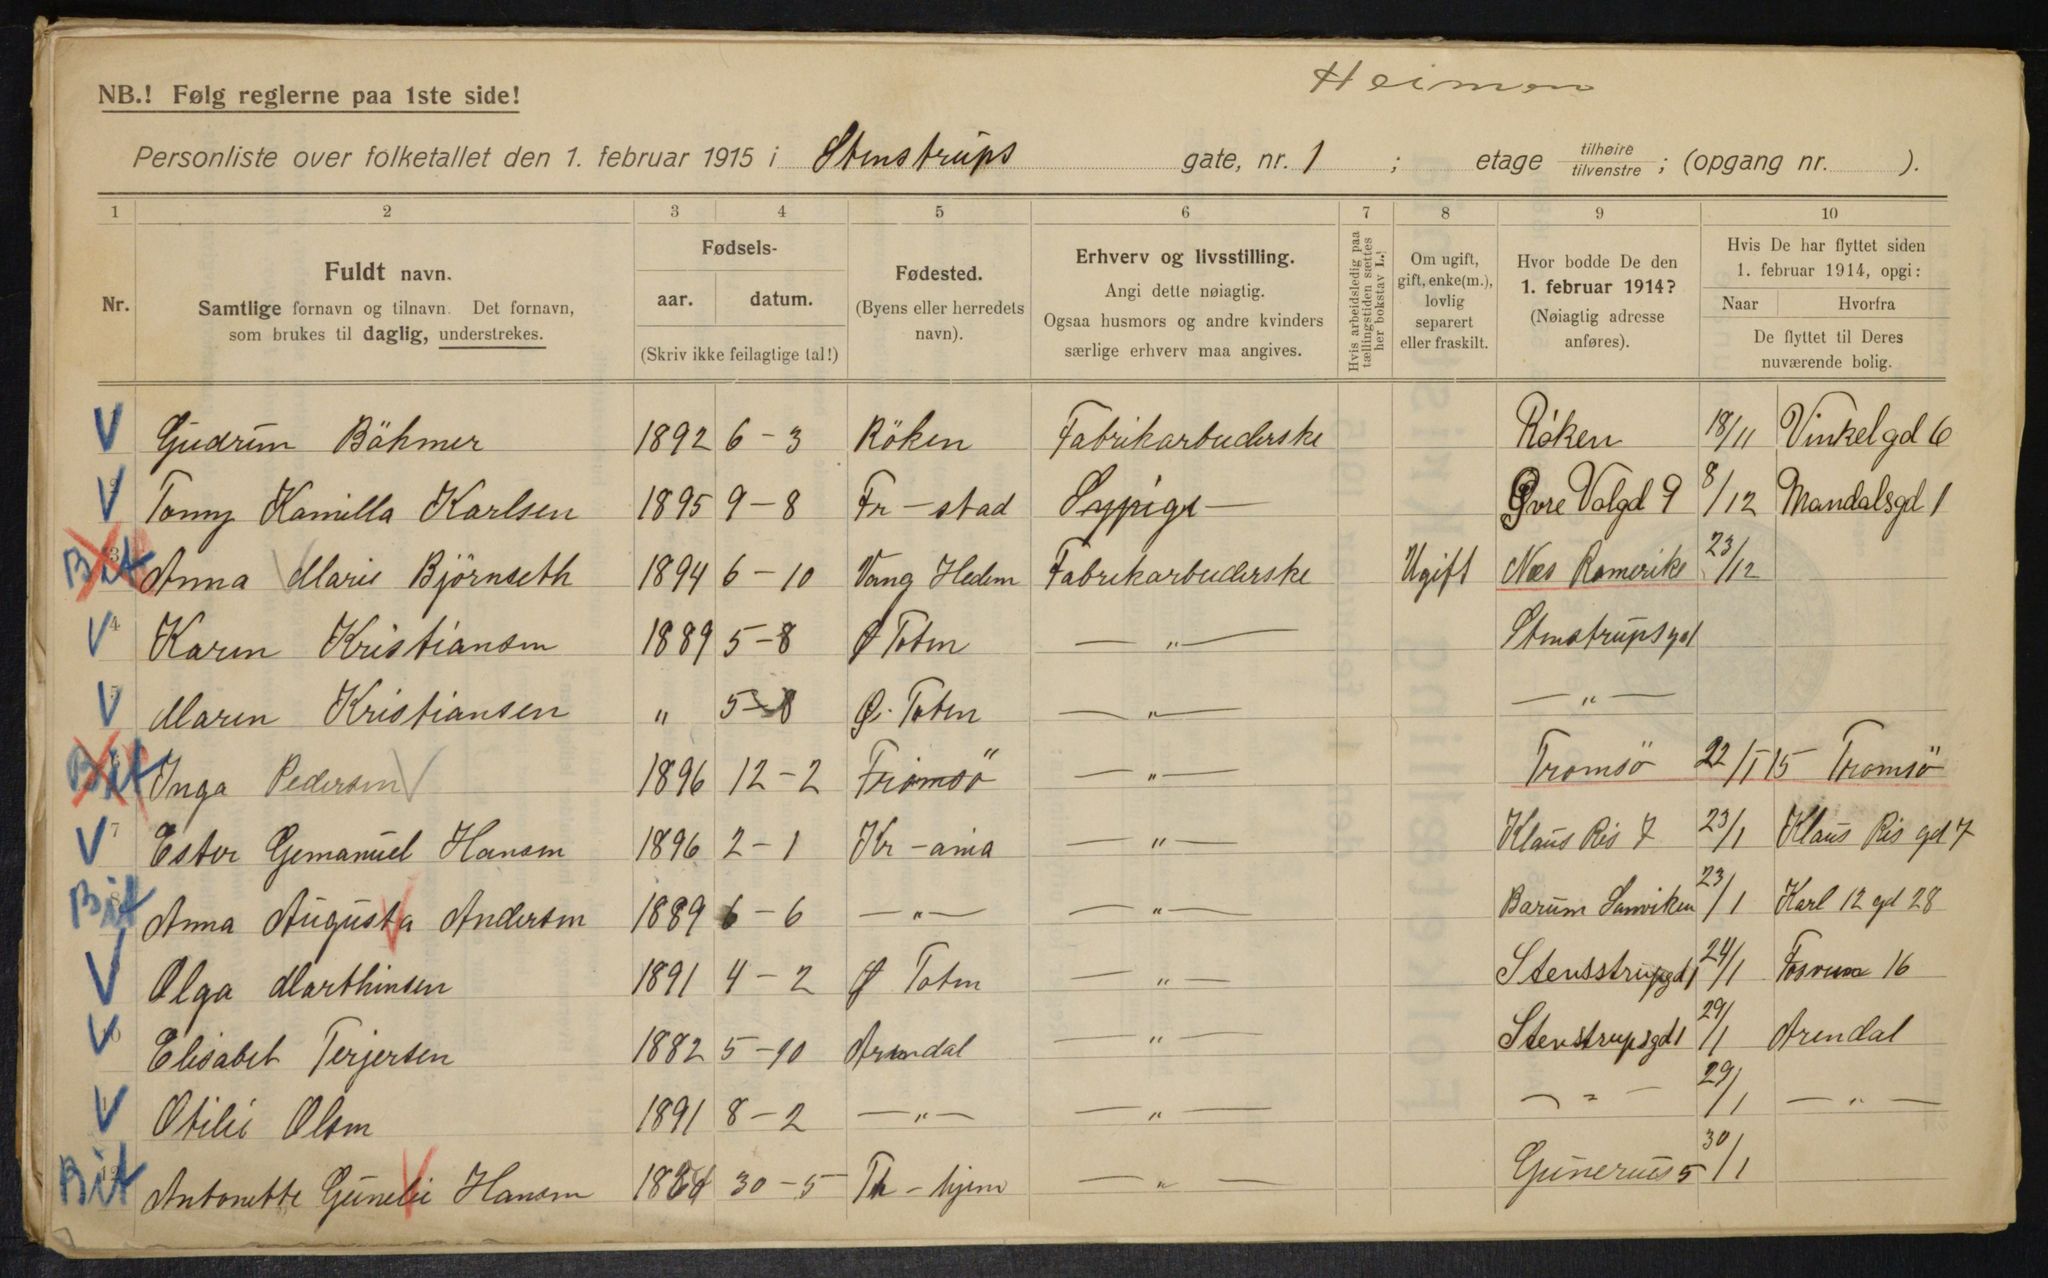 Heimen
NB.! Følg reglerne paa 1ste side!
Personliste over folketallet den 1. februar 1915 i Stenstrups gate, nr. 1 ; etage tilhøire tilvenstre ; (opgang nr. ).
1 2 3 4 5 6 7 8 9 10
Nr.
Fuldt navn.
Samtlige fornavn og tilnavn. Det fornavn,
som brukes til daglig, understrekes.
Fødsels-
aar. datum.
(Skriv ikke feilagtige tal!)
Fødested.
(Byens eller herredets
navn).
Erhverv og livsstilling.
Angi dette nøiagtig.
Ogsaa husmors og andre kvinders
særlige erhverv maa angives.
Hvis arbeidsledig paa
tællingstiden sættes
her bokstav L.!
Om ugift,
gift, enke(m.),
lovlig
separert
eller fraskilt.
Hvor bodde De den
1. februar 1914?
(Nøiagtig adresse
anføres).
Hvis De har flyttet siden
1. februar 1914, opgi:
Naar Hvorfra
De flyttet til Deres
nuværende bolig.
V Gudrun Böhmer 1892 6 – 3 Röken Fabrikarbeiderske Röken 18/11 Vinkelgd 6
V Tonny Kamilla Karlsen 1895 9 – 8 Fr – stad Sypige — Øvre Volgd 9 8/12 Mandalsgd 1
Bit 3 Anna Marie Björnseth 1894 6 – 10 Vang Hedem Fabrikarbeiderske Ugift Næs Romerike 23/12
V 4 Karen Kristiansen 1889 5 – 8 Ø Toten — „ — Stenstrupsgd 1
V 5 Maren Kristiansen „ 5 – 8 Ø. Toten — „ — — „ —
Bit Inga Pedersen V 1896 12 – 2 Tromsö — „ — Tromsö 22/1 15 Tromsö
V 7 Ester Gemanuel Hansen 1896 2 – 1 Kr – ania — „ — Klaus Ris 7 23/1 Klaus Ris gd 7
Bit 8 Anna Augusta Andersen 1889 6 – 6 — „ — — „ — Barum Sanviken 23/1 Karl 12 gd 28
V Olga Marthinsen 1891 4 – 2 Ø Toten — „ — Stensstrupgd 1 24/1 16
V Elisabet Terjersen 1882 5 – 10 Arendal — „ — Stenstrupsgd 1 29/1 Arendal
V Otilie Olsen 1891 8 – 2 — „ — — „ — — „ — 29/1 — „ —
Bit 12 Antonette Hansen 30 – 5 Th – hjem — „ — Gunerius 5 30/1